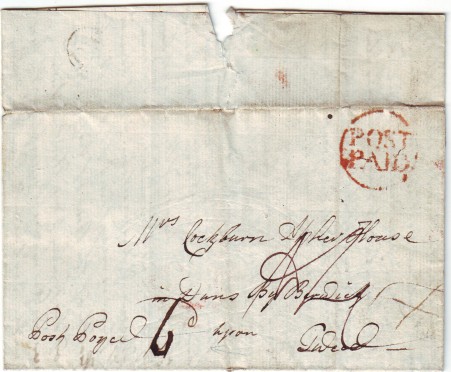 POST
PAID
Mrs Cockburn House
in Duns By Berwick
Post Payed 6d upon Tweed